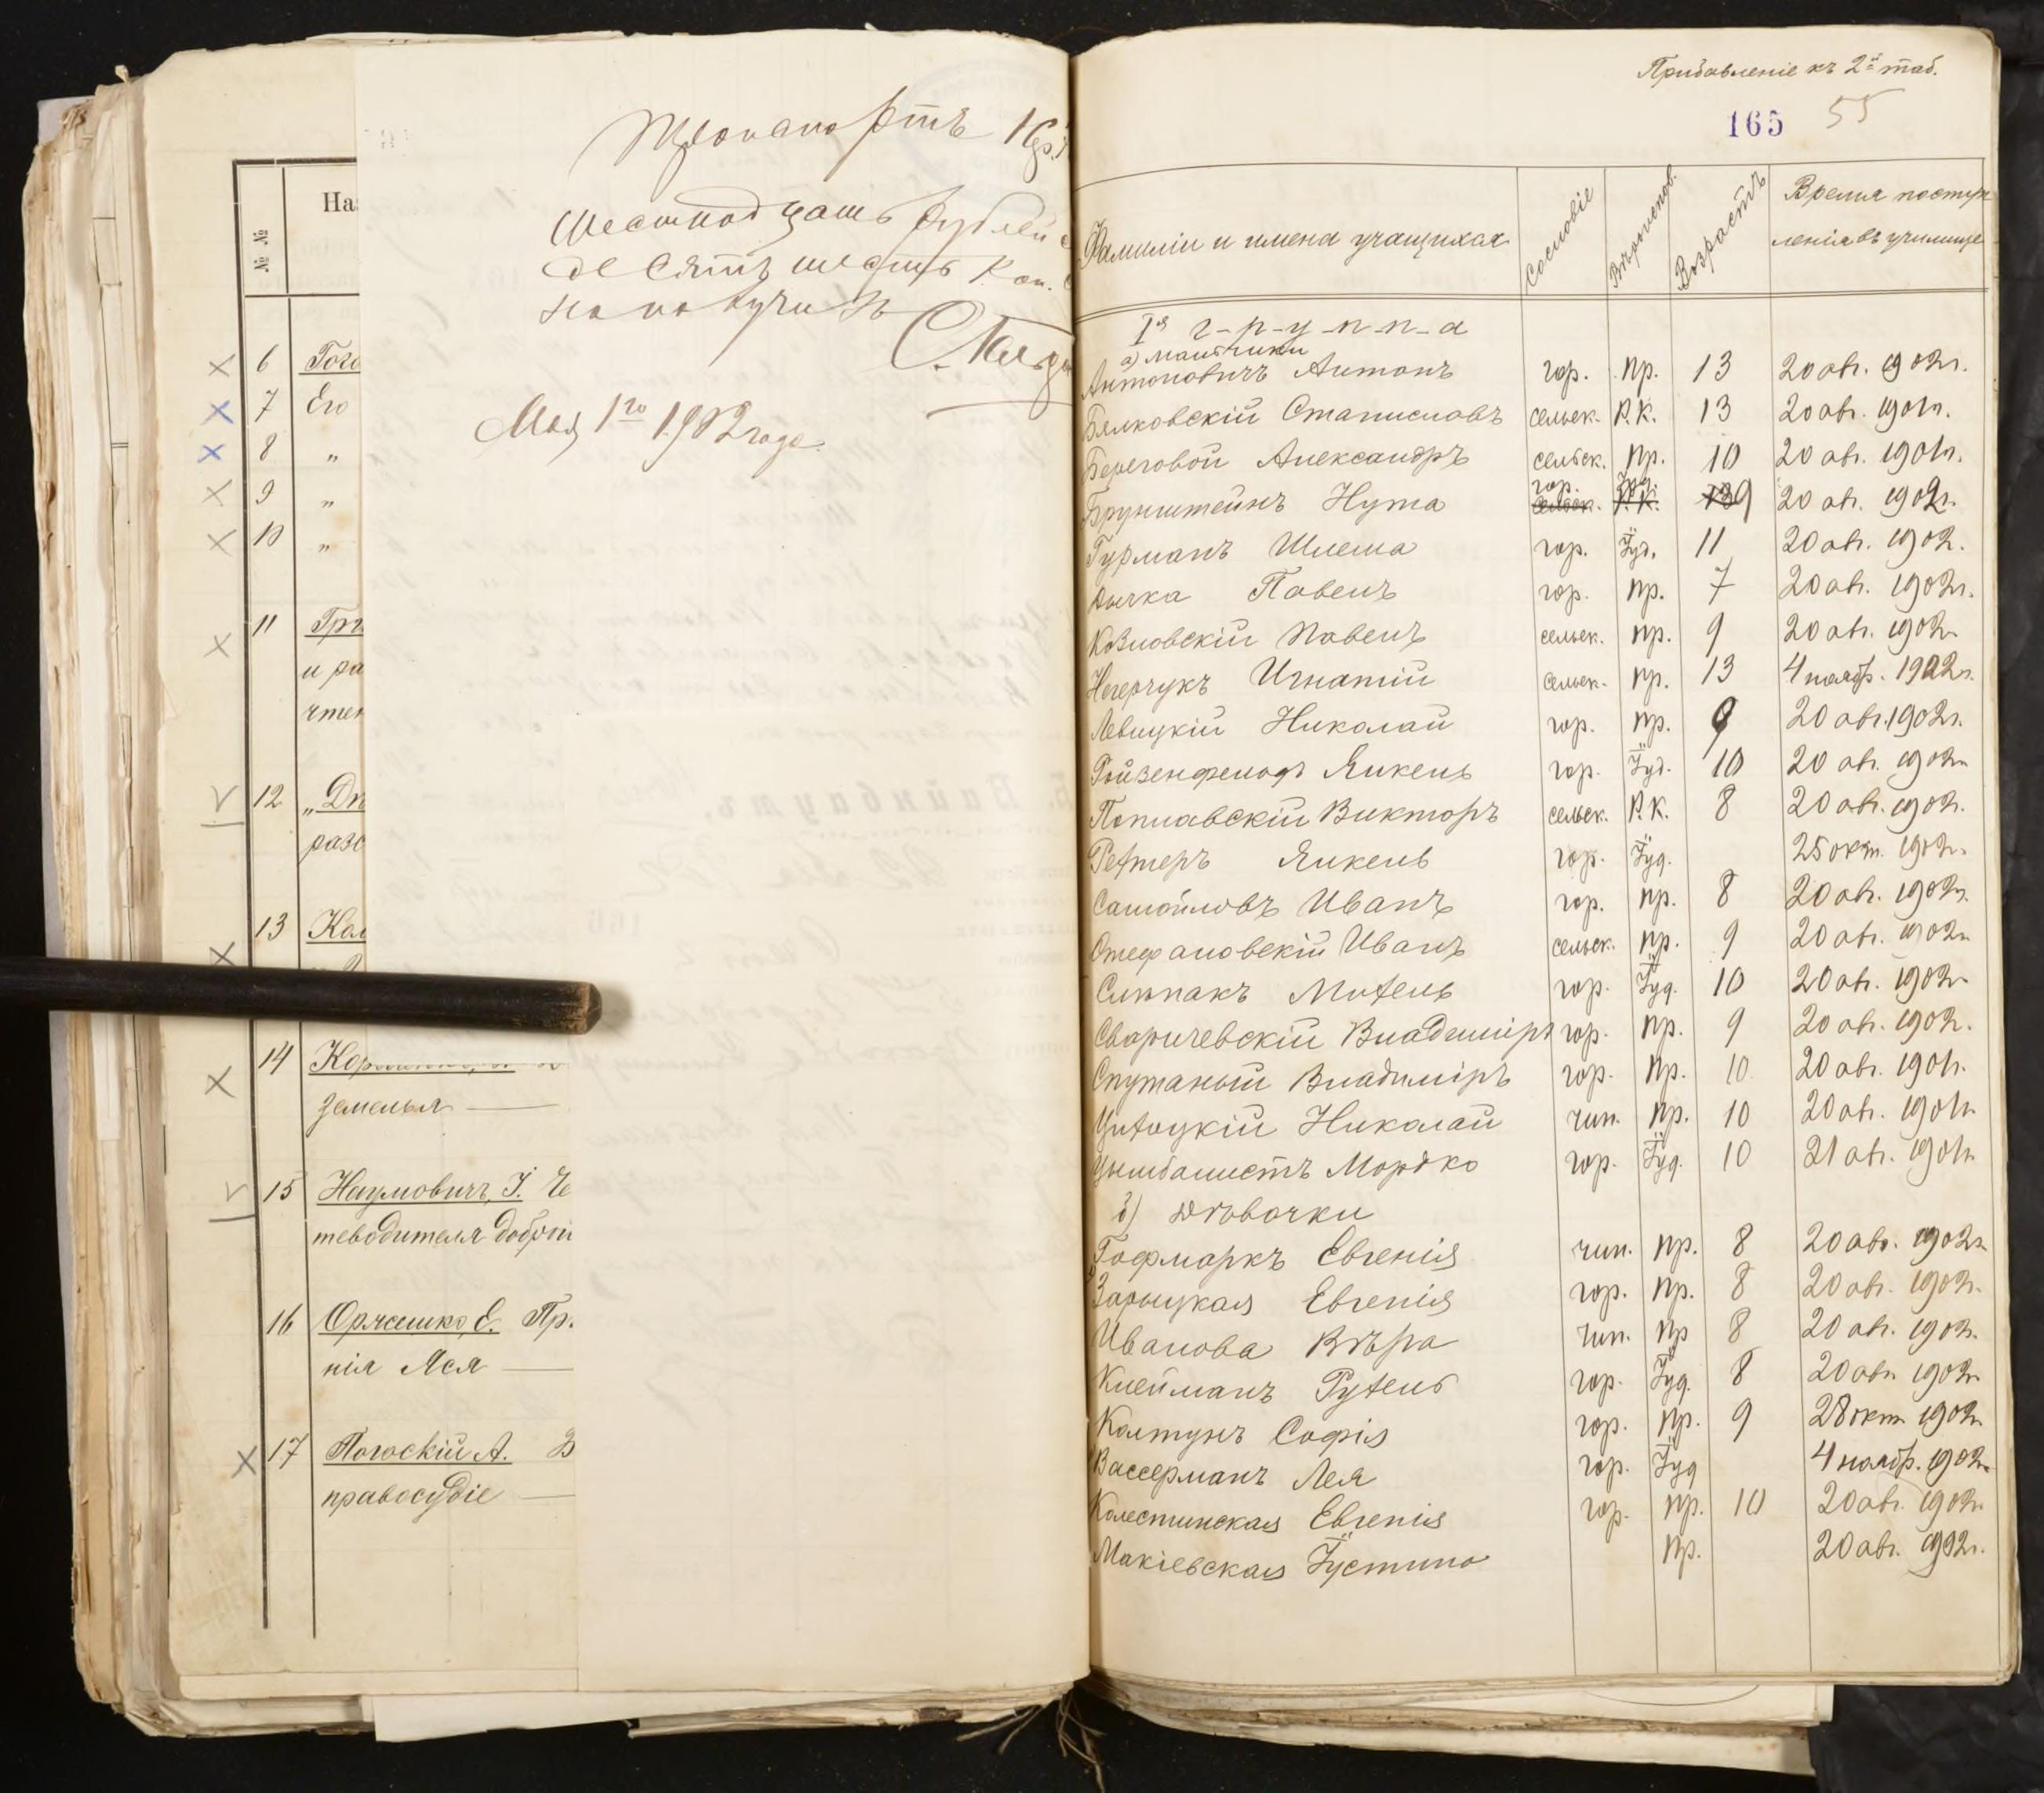 № №
На
6 Гого
7 Его
8 „
9 „
10 „
11 Гри
и ра
чтен
12 „Дн
разс
13 Кал
14
земелья —
15 Наумовичъ, І. Че
теводителя добрый
16 Оржешко, Е. Пр.
нія Яся —
17 Погоскій А. Д
правосудіе —
Шестнадцать рублей
десять шесть Коп.
получилъ
Мая 1го 1902 года
Прибавленіе къ 2й таб.
165 55
Фамиліи и имена учащихся Сословіе Вѣроисповѣд. Возрастъ Время поступ
ленія въ училище
Iя г-р-у-п-п-а
а) мальчики
Антоновичъ Антонъ гор. пр. 13 20 авг. 1902г.
Бялковскій Станиславъ сельск. Р.К. 13 20 авг. 1901г.
Береговой Александръ сельск. пр. 10 20 авг. 1901г.
Брунштейнъ Нута гор. Іуд. 9 20 авг. 1902г.
Гурманъ Шлема гор. Іуд. 11 20 авг. 1902.
Дычка Павелъ гор. пр. 7 20 авг. 1902г.
Козловскій Павелъ сельск. пр. 9 20 авг. 1902г.
Негерчукъ Игнатій сельск. пр. 13 4 нояб. 1902г.
Левицкій Николай гор. пр. 9 20 авг. 1902г.
Ройзенфельдъ Янкель гор. Іуд. 10 20 авг. 1902г.
Поплавскій Викторъ сельск. Р.К. 8 20 авг. 1902г.
Рехтеръ Янкель гор. Іуд. 25 окт. 1902г.
Самойловъ Иванъ гор. пр. 8 20 авг. 1902г.
Стефановскій Иванъ сельск. пр. 9 20 авг. 1902г.
Слипакъ Михель гор. Іуд. 10 20 авг. 1902г.
Сваричевскій Владиміръ гор. пр. 9 20 авг. 1902г.
Спутаный Владиміръ гор. пр. 10 20 авг. 1901г.
Цихоцкій Николай чин. пр. 10 20 авг. 1901г.
Цымбалистъ Мордко гор. Іуд. 10 21 авг. 1901г.
б) дѣвочки
Гофмаркъ Евгенія чин. пр. 8 20 авг. 1902г.
Зарыцкая Евгенія гор. пр. 8 20 авг. 1902г.
Иванова Вѣра чин. пр 8 20 авг. 1902г.
Клейманъ Рухель гор. Іуд. 8 20 авг. 1902г.
Колтунъ Софія гор. пр. 9 28 окт. 1902г.
Вассерманъ Лея гор. Іуд 4 нояб. 1902г.
Колестинская Евгенія гор. пр. 10 20 авг. 1902г.
Макіевская Іустина пр. 20 авг. 1902г.